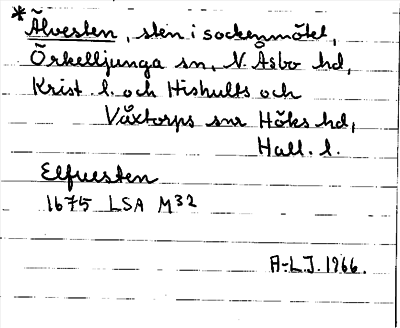 *Älvesten, sten i sockenmötet,
Örkelljunga sn, N. Åsbo hd,
Krist. l. och Hishults och
Våxtorps snr Höks hd,
Hall. l.
Elfuesten
1675 LSA M32
A-L.J. 1966.